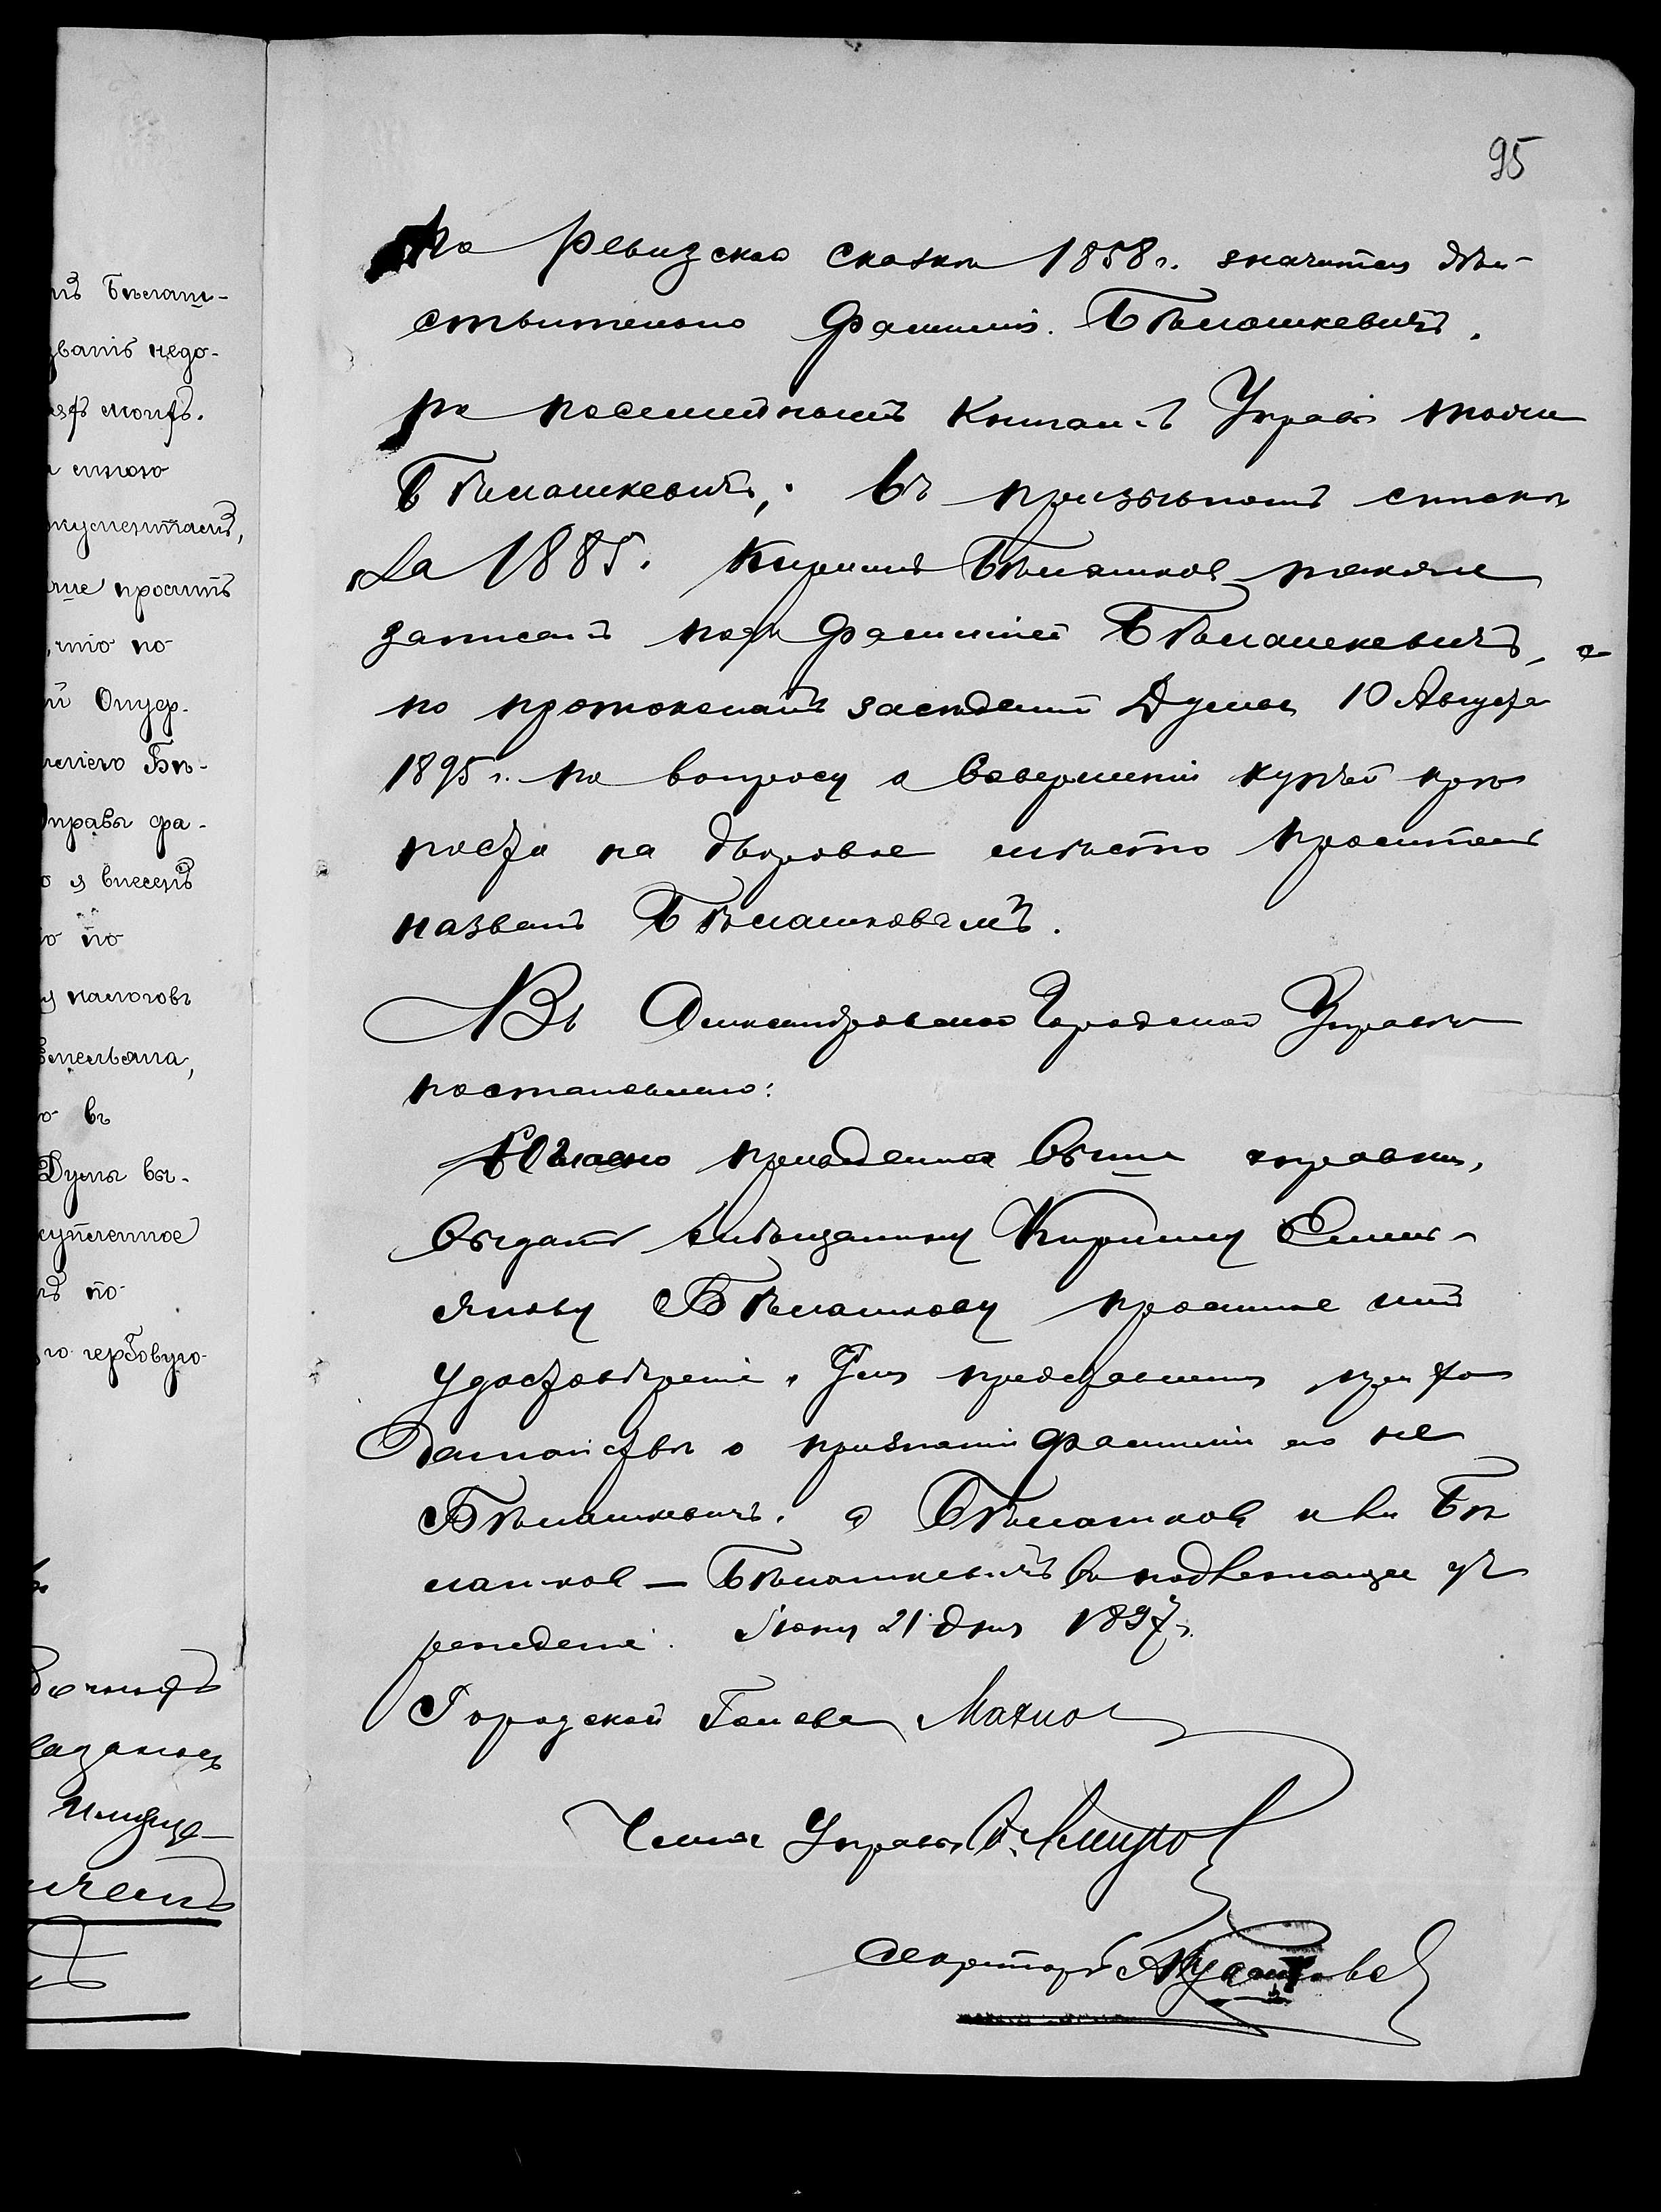 95
По Ревизской сказкѣ 1858 г. значится дѣй-
ствительно фамилія Бѣлашкевичъ.
По посемейнымъ книгамъ Управы тоже
Бѣлашкевичъ; въ призывномъ спискѣ
за 1885 г. Кириллъ Бѣлашковъ также
записанъ подъ фамиліей Бѣлашкевичъ, а
по протоколамъ засѣданій Думы 10 Августа
1895 г. по вопросу о совершеніи купчей крѣ
пости на дворовое мѣсто проситель
названъ Бѣлашковымъ.
Въ Александровской Городской Управѣ
постановлено:
Согласно приведенной выше справки,
выдать мѣщанину Кириллу Емель-
янову Бѣлашкову просимое имъ
удостовѣреніе для представленія при хо
датайствѣ о признаніи фамиліи его не
Бѣлашкевичъ, а Бѣлашковъ или Бѣ
лашковъ — Бѣлашкевичъ въ подлежащее уч
режденіе. Іюня 21 дня 1897 г.
Городской Голова Махно
Членъ Управы
Секретарь
нъ Бѣлаш-
званіе недо-
кументамъ,
просить
что по
Онуф-
Бѣ-
Управы фа-
я внесенъ
по
налоговъ
Емельяна,
въ
Думы вы-
купленное
по
гербовую